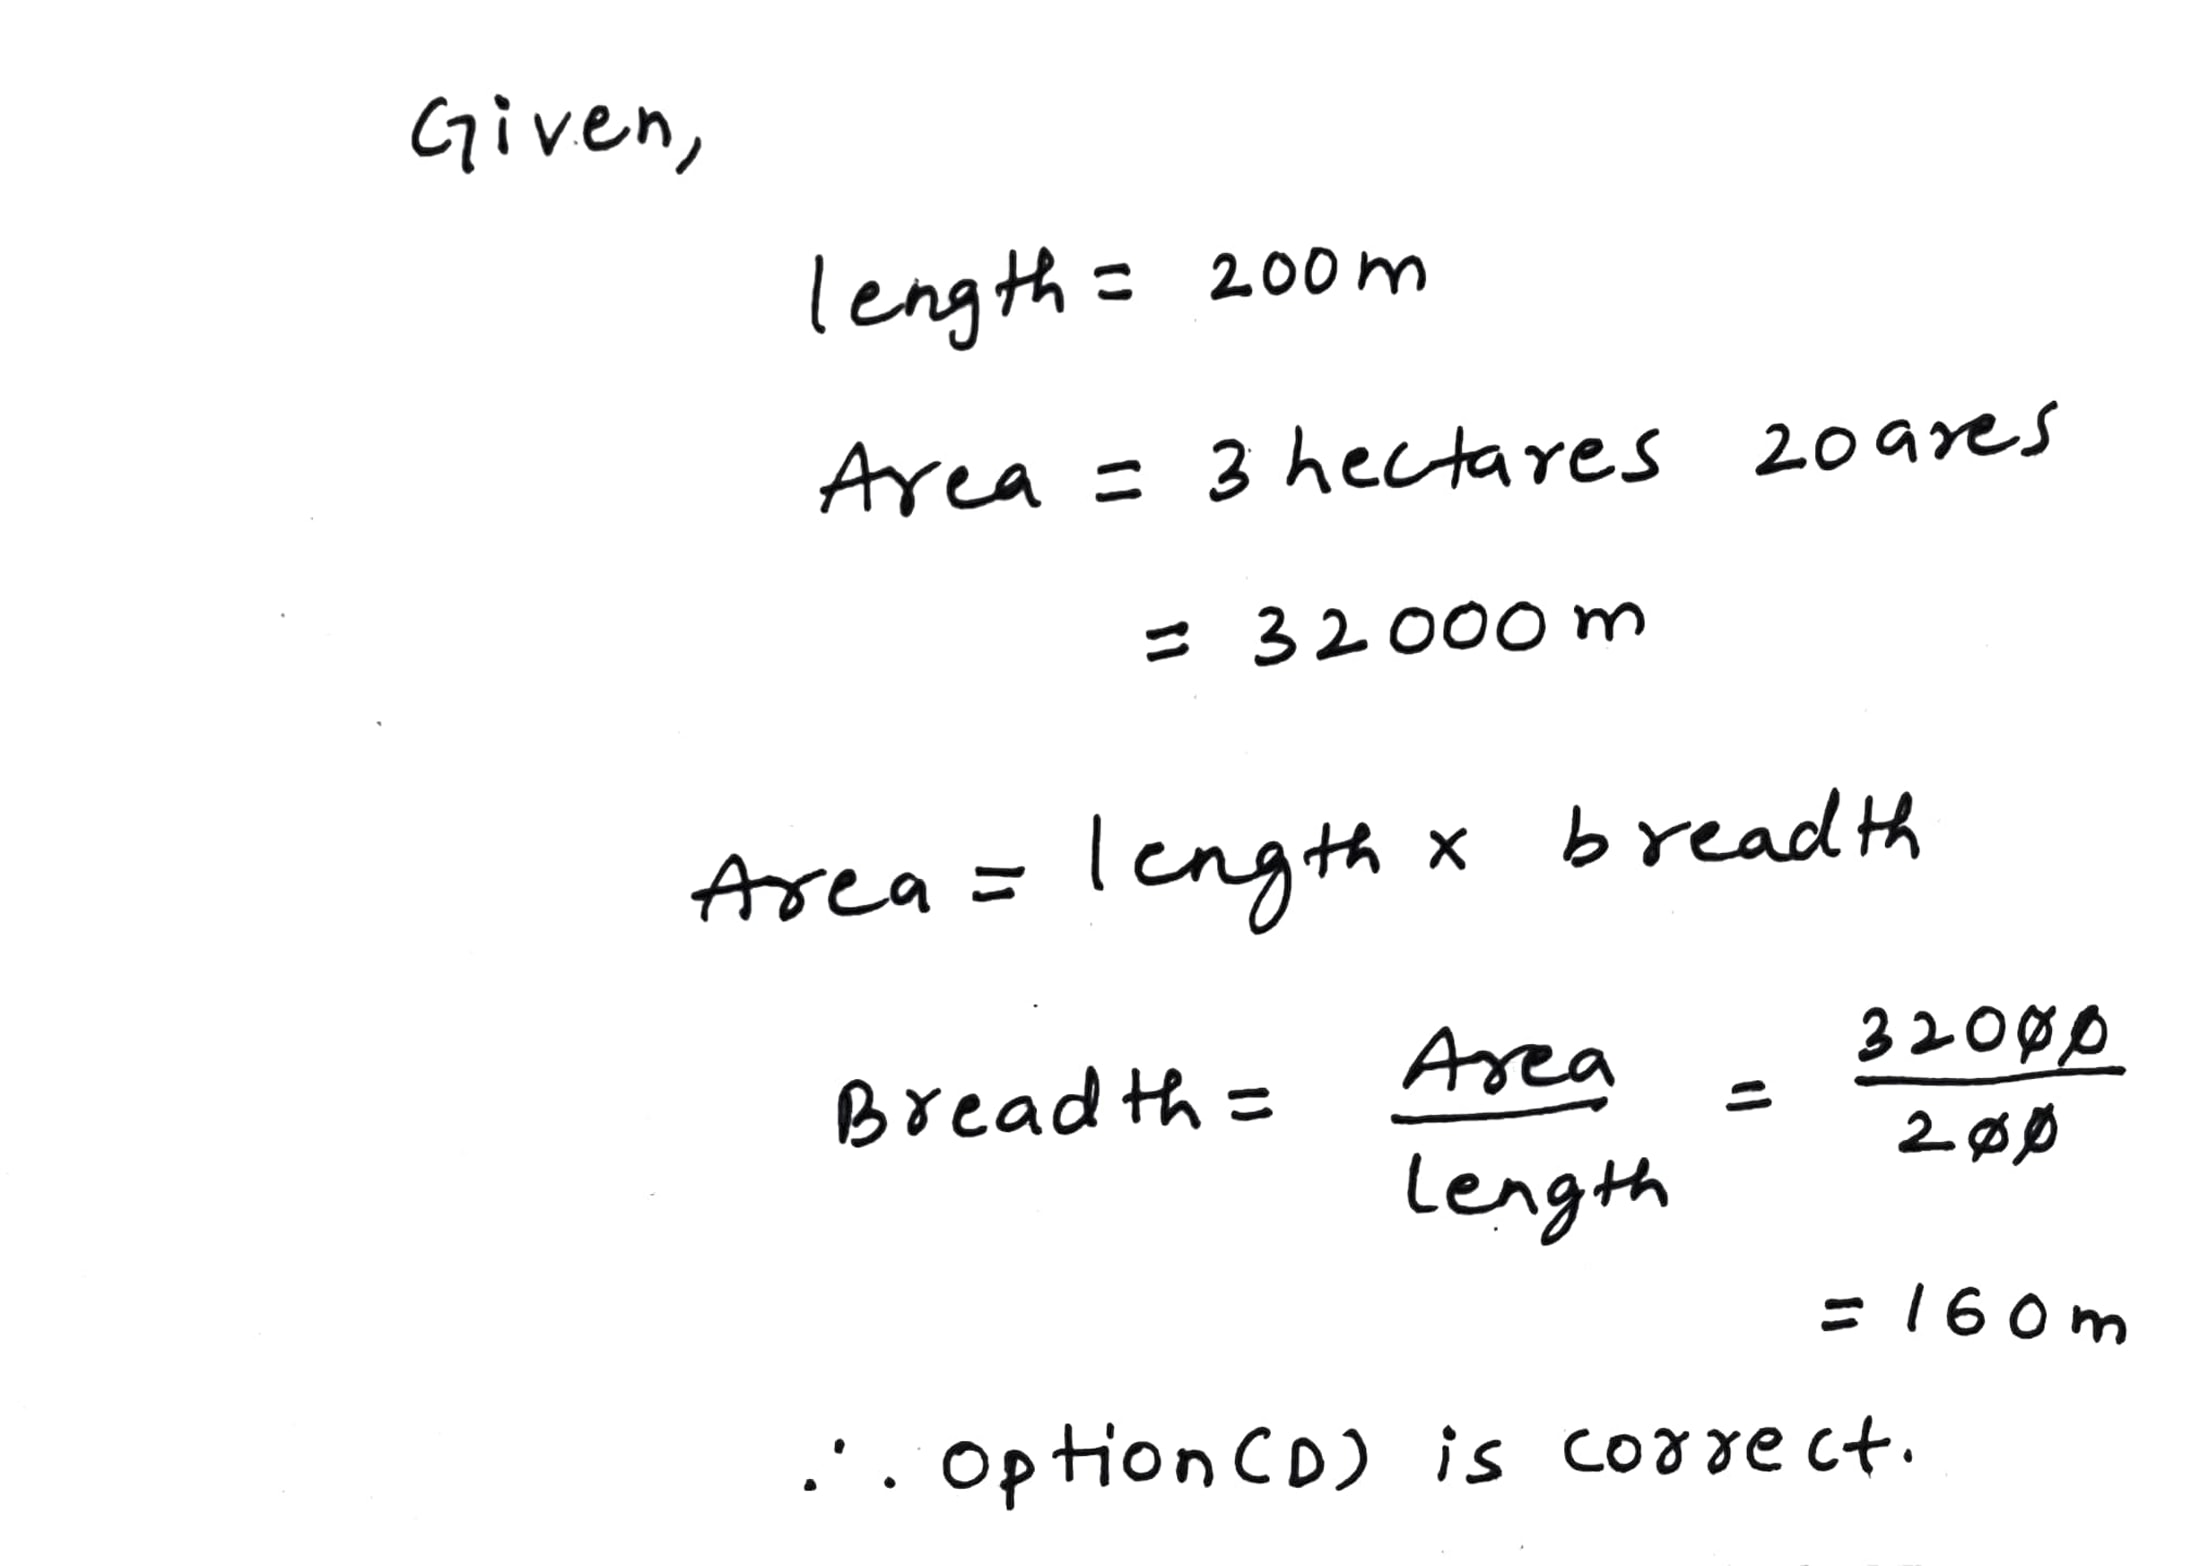 Given,
length = 200m
Area = 3 hectares 20 ares
= 32000 m
Area = length x breadth
Breadth = Area / Length = 32000 / 200
= 160m
∴ Option (D) is correct.